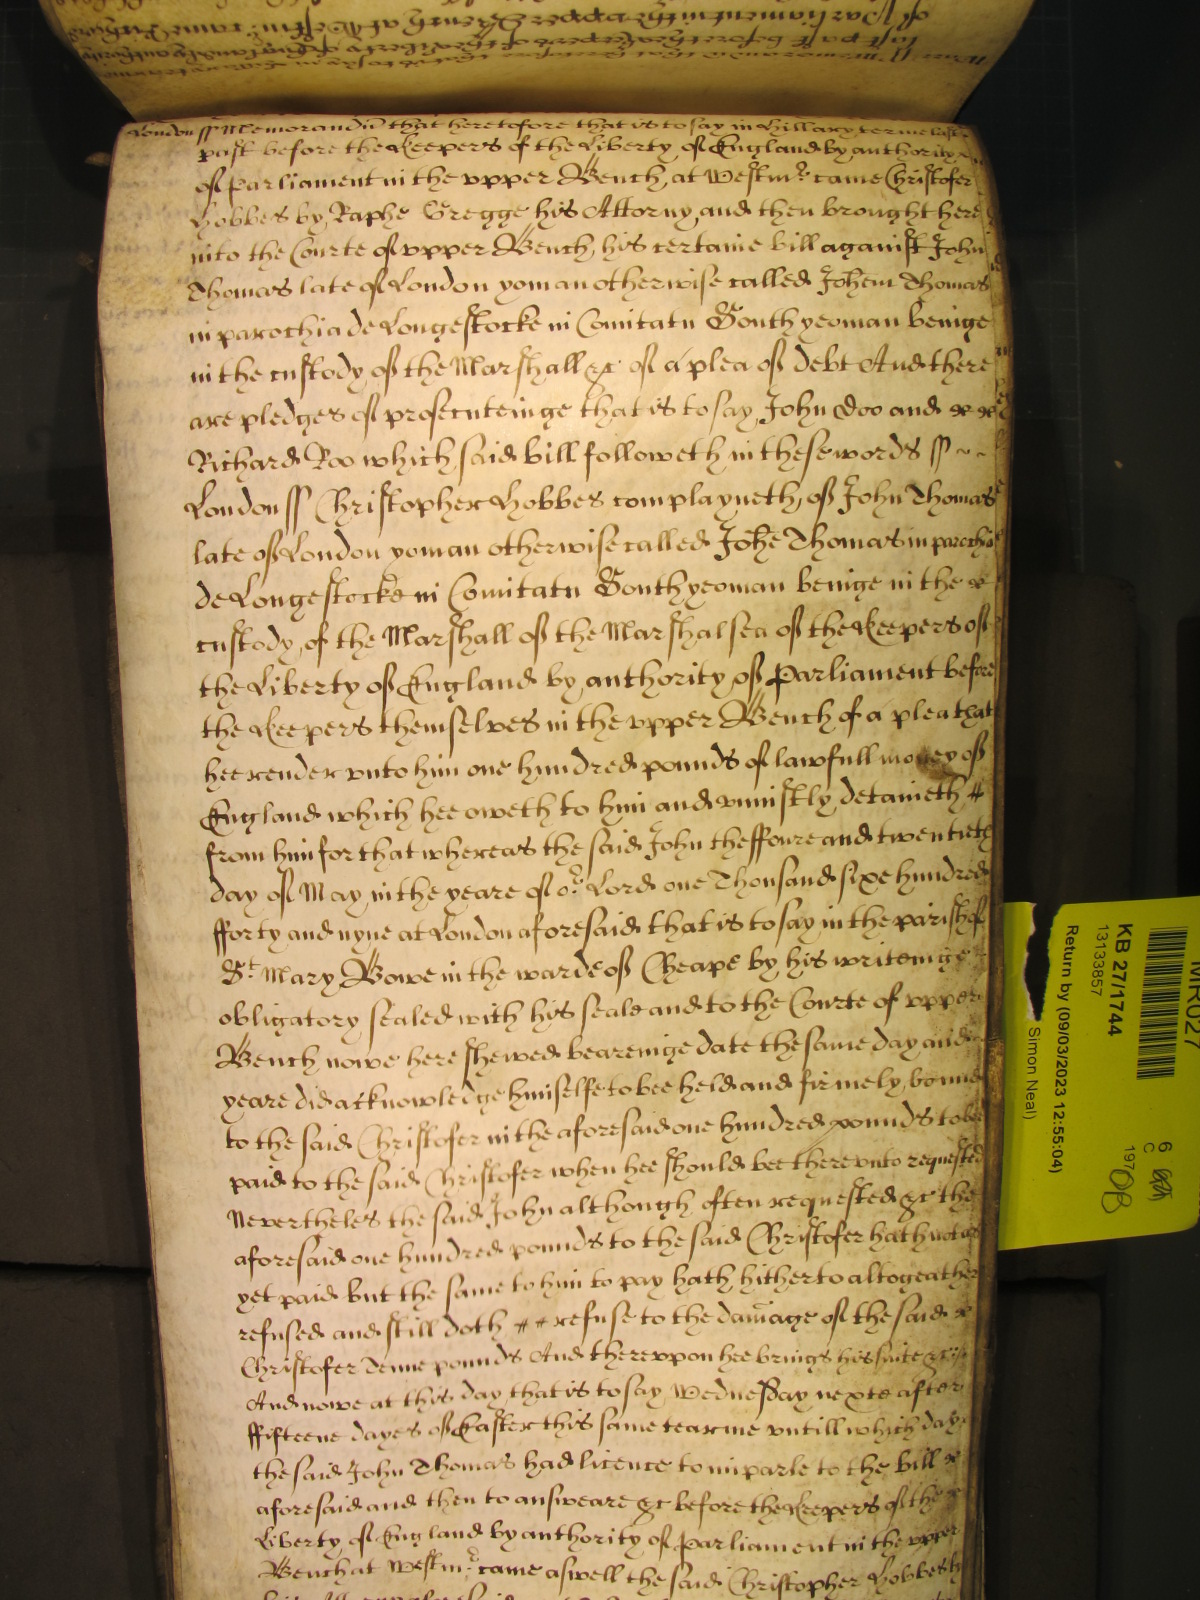 London ss Memorandũ that heretofore that is to say in Hillary terme last
past before the Keepers of the Liberty of England by authority
of Parliament in the upper Bench at Westmr: came Christofer
Hobbes by Raphe Gregge his Attorny and then brought here
into the Courte of upper Bench his certaine bill against John
Thomas late of London yoman otherwise called Johem Thomas
in parochia de Longestocke in Comitatu South yeoman beinge
in the custody of the Marshall &c of a plea of debt And there
are pledges of prosecuteinge that is to say John Doo and
Richard Roo which said bill followeth in these words ss
London ss Christopher Hobbes complayneth of John Thomas
late of London yoman otherwise called Johe Thomas in parochia
de Longestocke in Comitatu South yeoman beinge in the
custody of the Marshall of the Marshalsea of the Keepers of
the Liberty of England by authority of Parliament before
the Keepers themselves in the upper Bench of a plea that
hee render unto him one hundred pounds of lawfull money of
England which hee oweth to him and uniustly detaineth
from him for that whereas the said John the ffoure and twentieth
day of May in the yeare of or Lord one Thousand sixe hundred
fforty and nyne at London aforesaid that is to say in the parish of
St Mary Bowe in the warde of Cheape by his writeinge
obligatory sealed with his seale and to the Courte of upper
Bench nowe here shewed beareinge date the same day and
yeare did acknowledge himselfe to bee held and firmely bound
to the said Christofer in the aforesaid one hundred pounds to bee
paid to the said Christofer when hee should bee thereunto requested
Nevertheles the said John although often requested &c the
aforesaid one hundred pounds to the said Christofer hath not as
yet paid but the same to him to pay hath hitherto altogeather
refused and still doth refuse to the damage of the said
Christofer Tenne pounds And thereupon hee brings his suite &c
And nowe at this day that is to say Wednesday nexte after
ffifteene dayes of Easter this same tearme untill which day
the said John Thomas had licence to imparle to the bill
aforesaid and then to answeare &c before the Keepers of the
Liberty of England by authority of Parliament in the upper
Bench at Westmr: came aswell the said Christopher Hobbes by
MR027
KB 27/1744
13133857
Return by (09/03/2023 12:55:04)
Simon Neal)
6
C
197